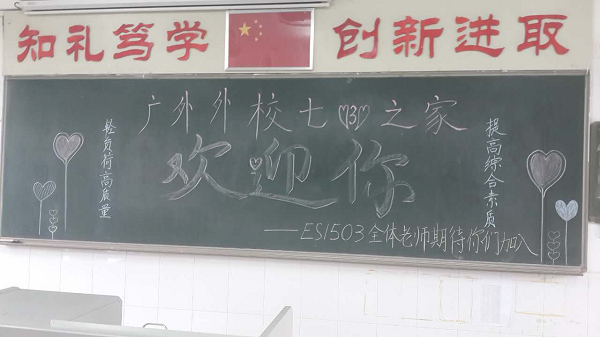 知礼笃学 创新进取
广外外校七(3)之家
欢迎你
轻负荷高质量
提高综合素质
——ES1503全体老师期待你们加入